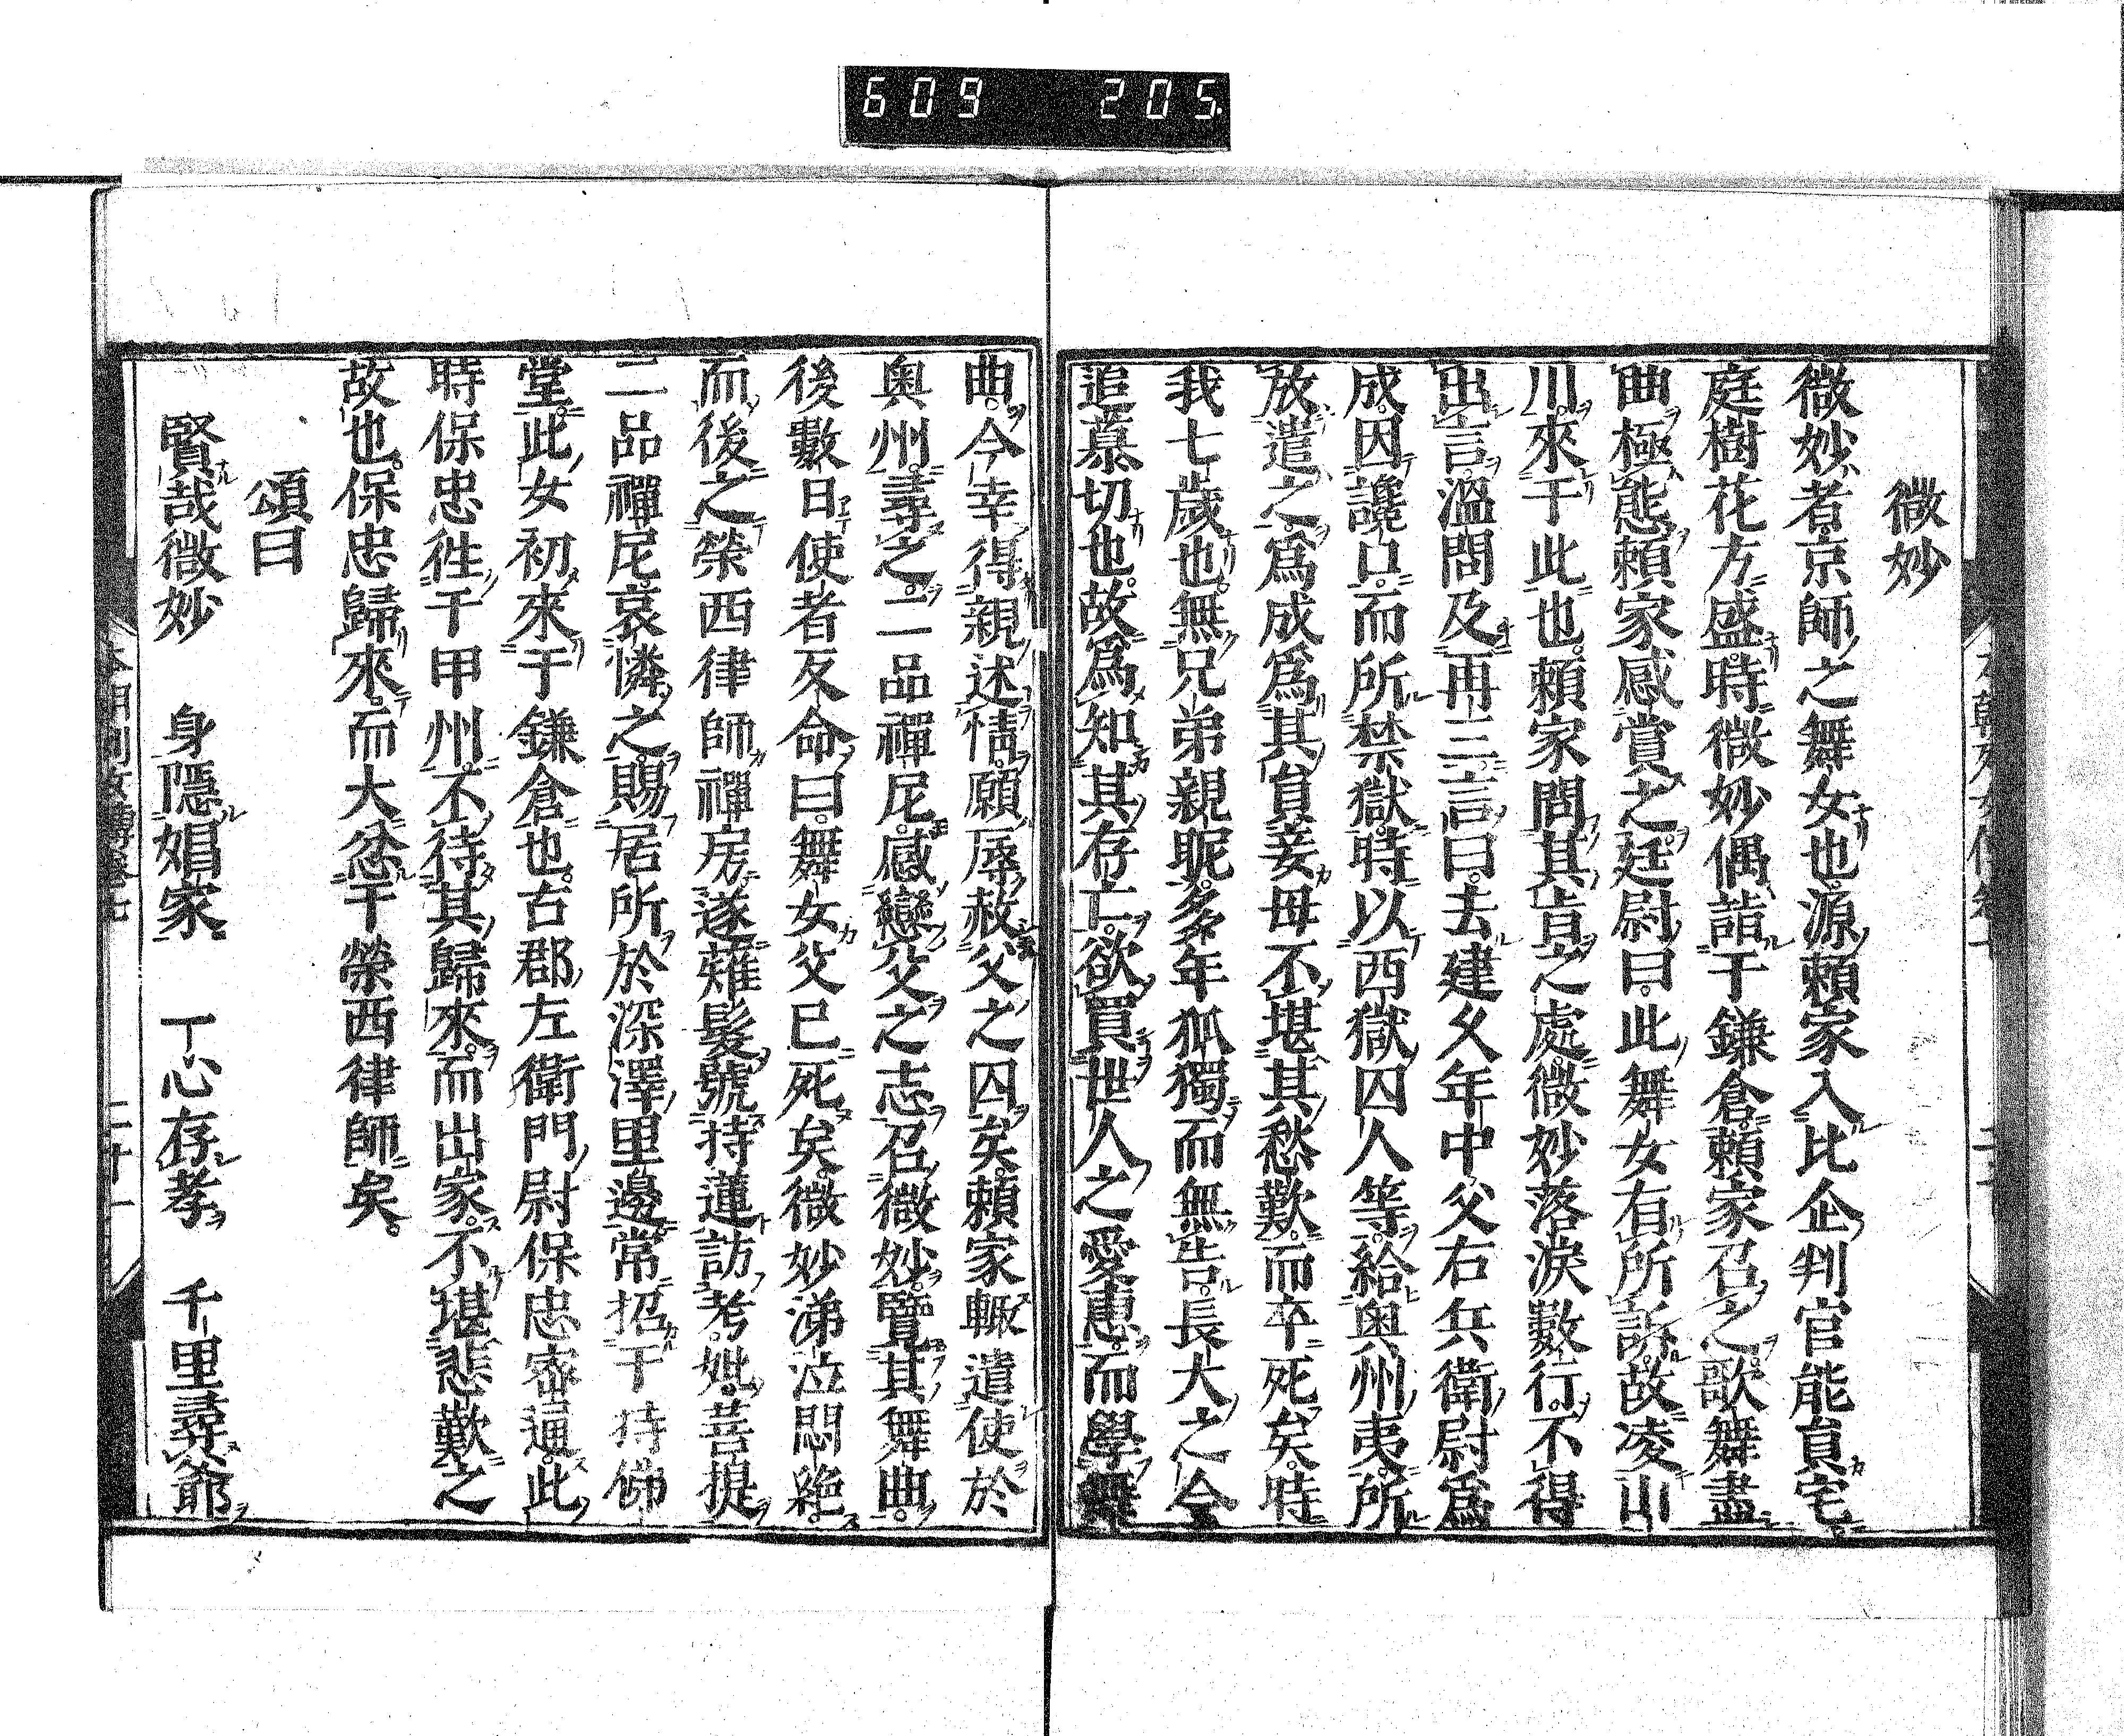 609 205
微妙
微妙者京師之舞女也源賴家入比企判官能員宅
庭樹花方盛時微妙偶詣于鎌倉賴家召之歌舞盡
曲極態賴家感賞之廷尉曰此舞女有所訴故凌山
川來于此也賴家問其旨之處微妙落淚數行不得
出言溫問及再三言曰去建久年中父右兵衛尉爲
成因讒口而所禁獄時以西獄囚人等給奧州夷所
放遣之爲成爲其員妾母不堪其愁歎而卒死矣時
我七歲也無兄弟親昵多年狐獨而無告長大之今
追慕切也故爲知其存亡欲買世人之愛惠而學舞
曲今幸得親述情願辱赦父之囚矣賴家輙遣使於
奧州尋之二品禪尼感戀父之志召微妙覽其舞曲
後數日使者反命曰舞女父已死矣微妙涕泣悶絕
而後之榮西律師禪房遂薙髮號持蓮訪考妣菩提
二品禪尼哀憐之賜居所於深澤里邊常招于持佛
堂此女初來于鎌倉也古郡左衛門尉保忠密通此
時保忠徃于甲州不待其歸來而出家不堪悲歎之
故也保忠歸來而大忿于榮西律師矣
頌曰
賢哉微妙 身隱娼家 丁心存孝 千里尋爺